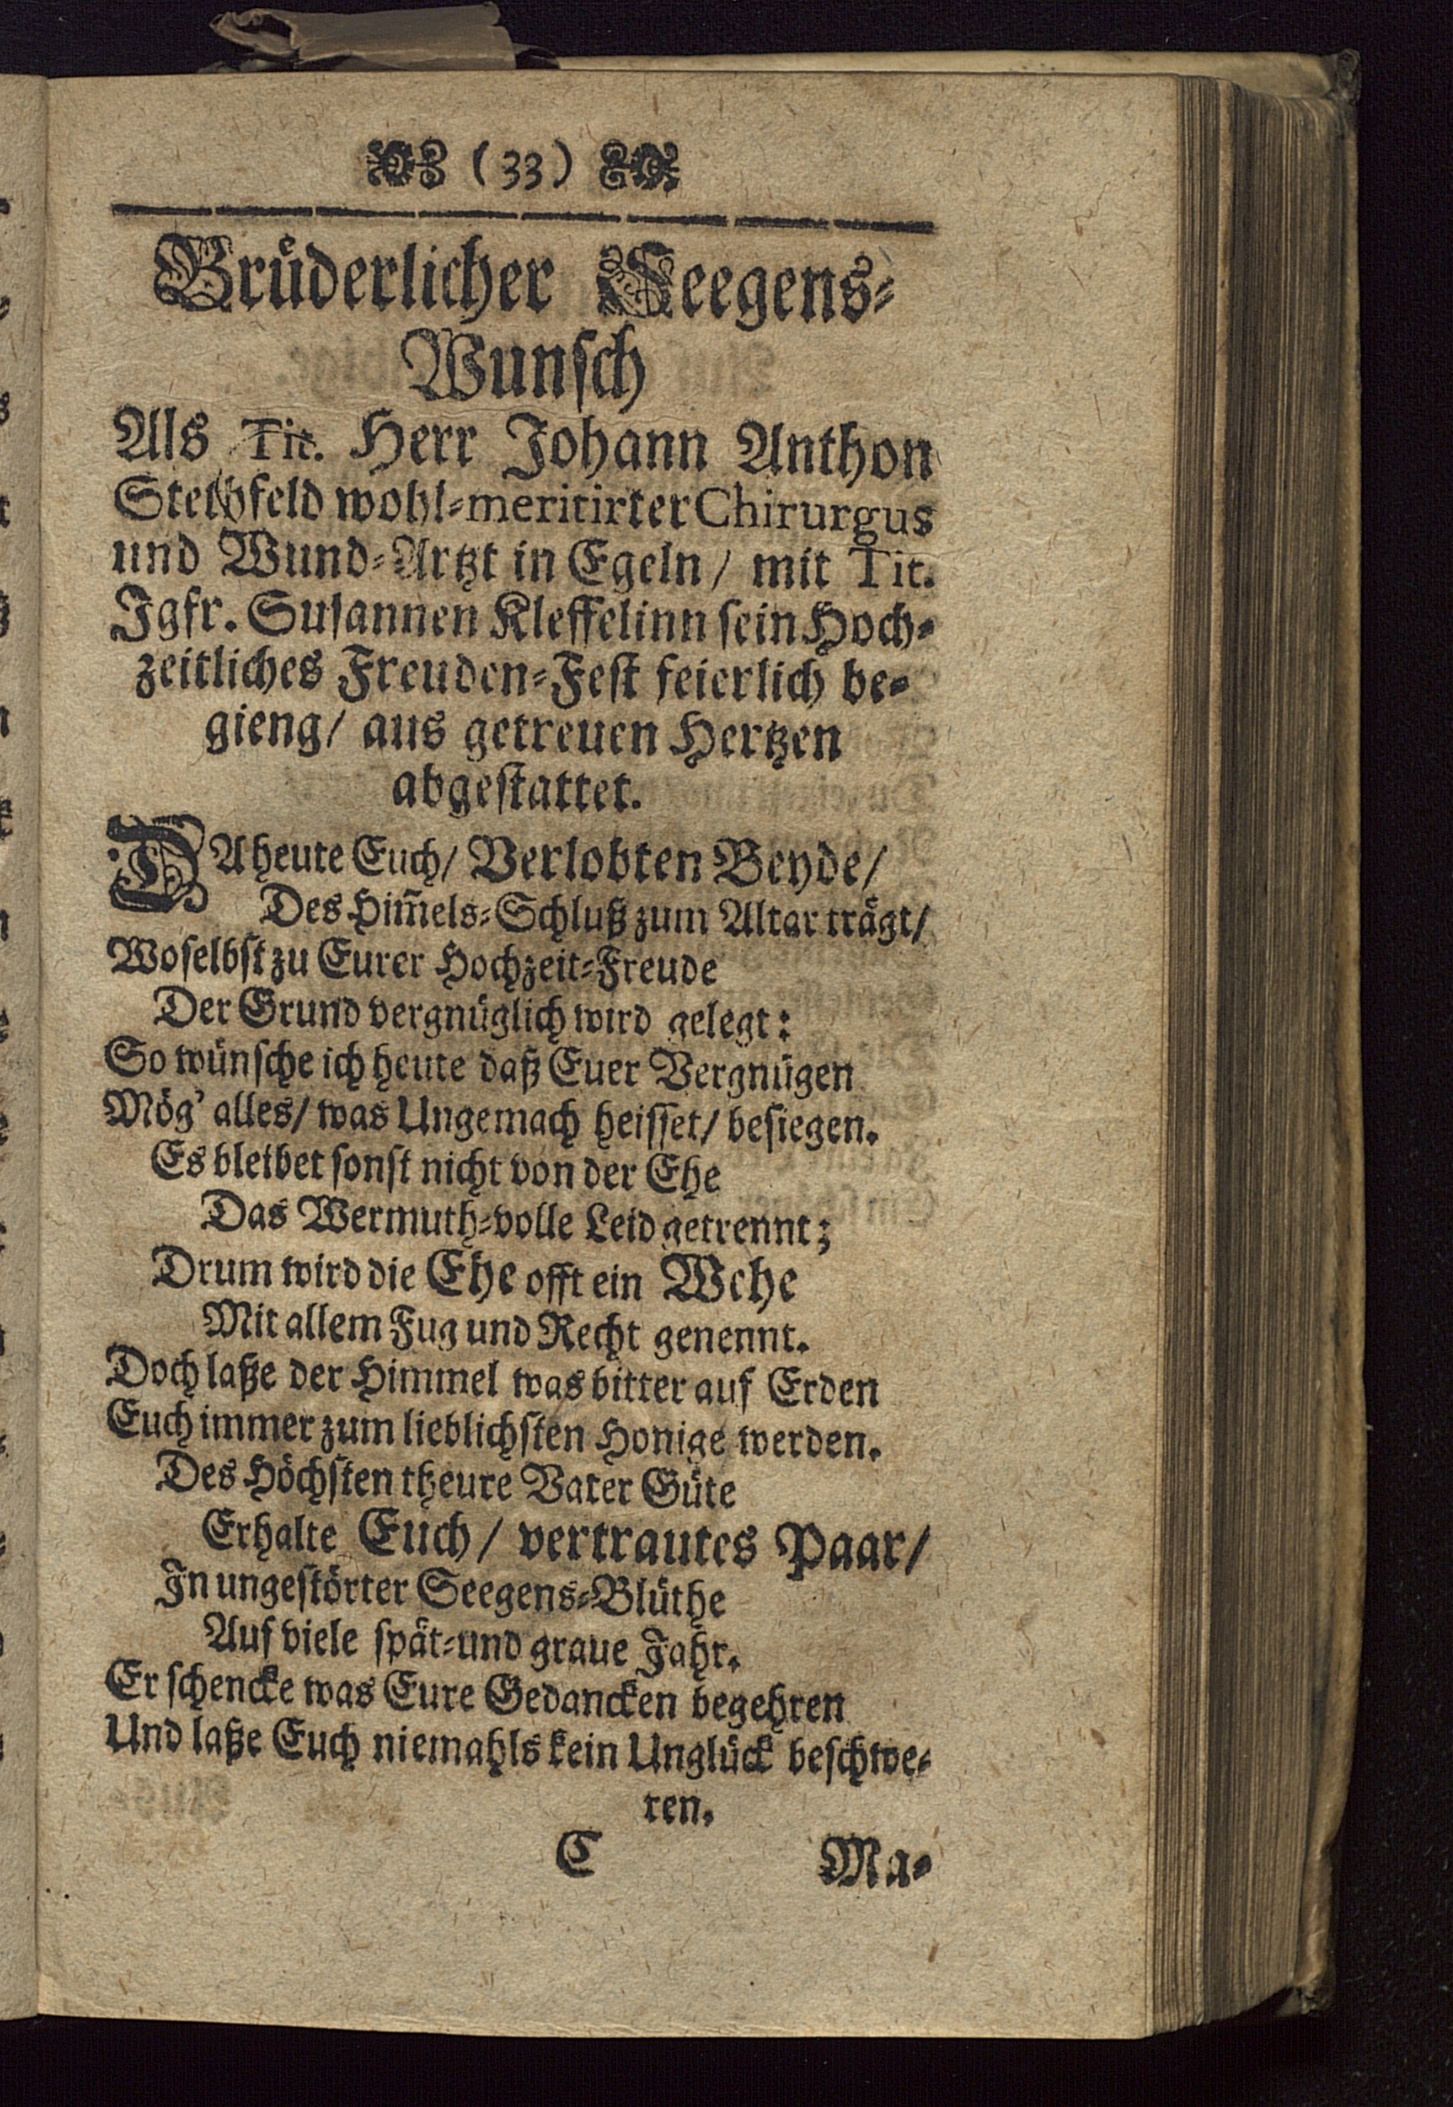 (33)
Bruͤderlicher Seegens-
Wunſch
Als Tit. Herr Johann Anthon
wohl-meritirter Chirurgus
und Wund-Artzt in Egeln/ mit Tit.
Jgfr. Suſannen Kleffelinn ſein Hoch-
zeitliches Freuden-Feſt feierlich be-
gieng/ aus getreuen Hertzen
abgeſtattet.
DA heute Euch/ Verlobten Beyde/
Des Him̃els-Schluß zum Altar traͤgt/
Woſelbſt zu Eurer Hochzeit-Freude
Der Grund vergnuͤglich wird gelegt:
So wuͤnſche ich heute daß Euer Vergnuͤgen
Moͤg' alles/ was Ungemach heiſſet/ beſiegen.
Es bleibet ſonſt nicht von der Ehe
Das Wermuth-volle Leid getrennt;
Drum wird die Ehe offt ein Wehe
Mit allem Fug und Recht genennt.
Doch laße der Himmel was bitter auf Erden
Euch immer zum lieblichſten Honige werden.
Des Hoͤchſten theure Vater Guͤte
Erhalte Euch/ vertrautes Paar/
In ungeſtoͤrter Seegens-Bluͤthe
Auf viele ſpaͤt-und graue Jahr.
Er ſchencke was Eure Gedancken begehren
Und laße Euch niemahls kein Ungluͤck beſchwe-
ren.
C Ma-